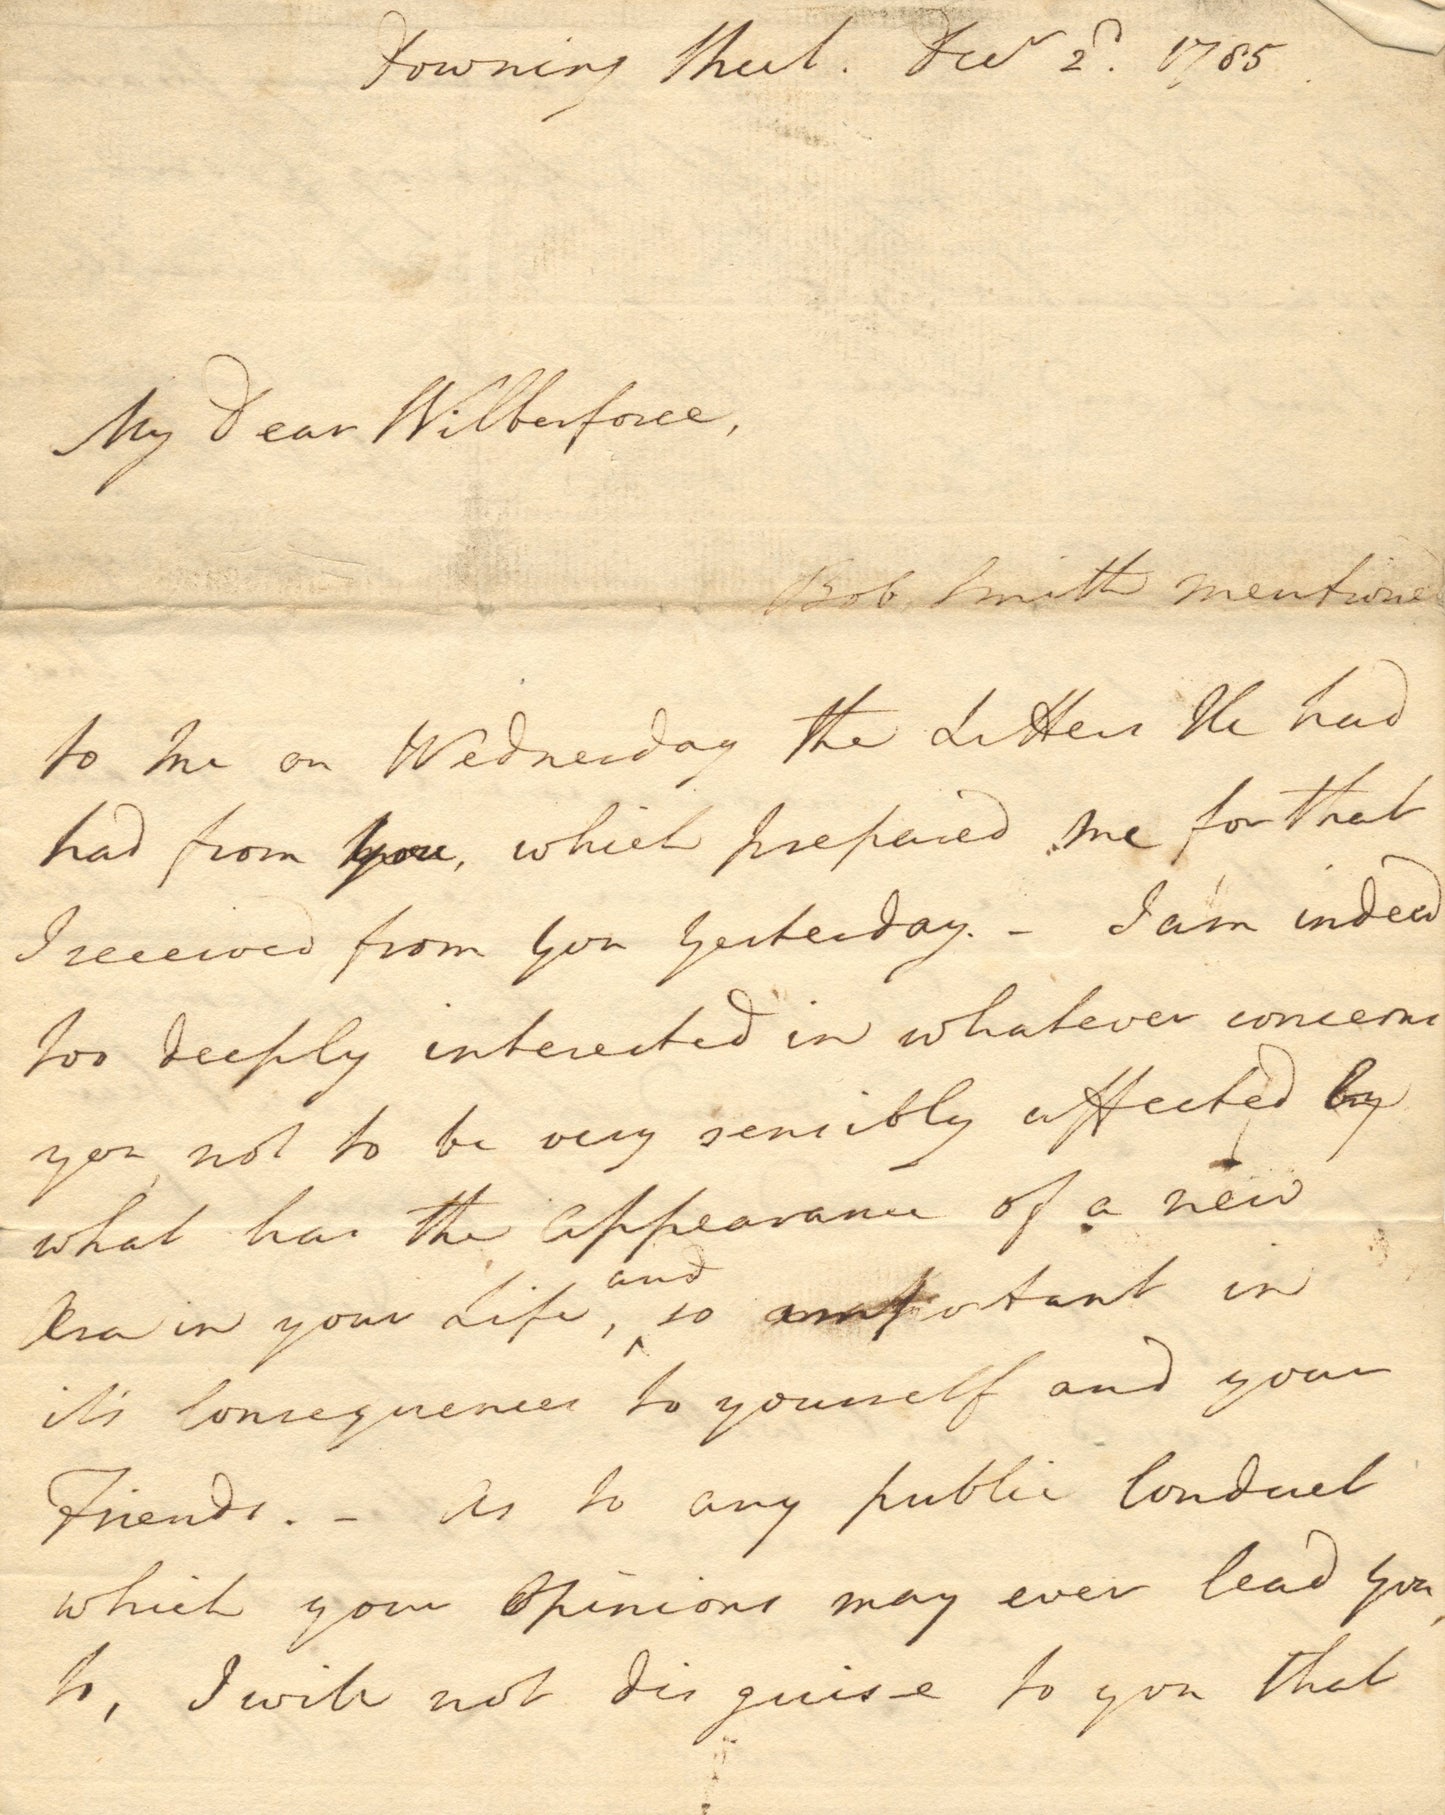 Downing Street. Decr 2d. 1785
My Dear Wilberforce,
Bob Smith mentioned
to me on Wednesday the Letters He had
had from you, which prepared me for that
I received from you yesterday. – I am indeed
too deeply interested in whatever concerns
you not to be very sensibly affected by
what has the appearance of a new
Æra in your Life, and so important in
it's Consequences to yourself and your
Friends. – As to any public Conduct
which your opinions may ever lead you
to, I will not disguise to you that